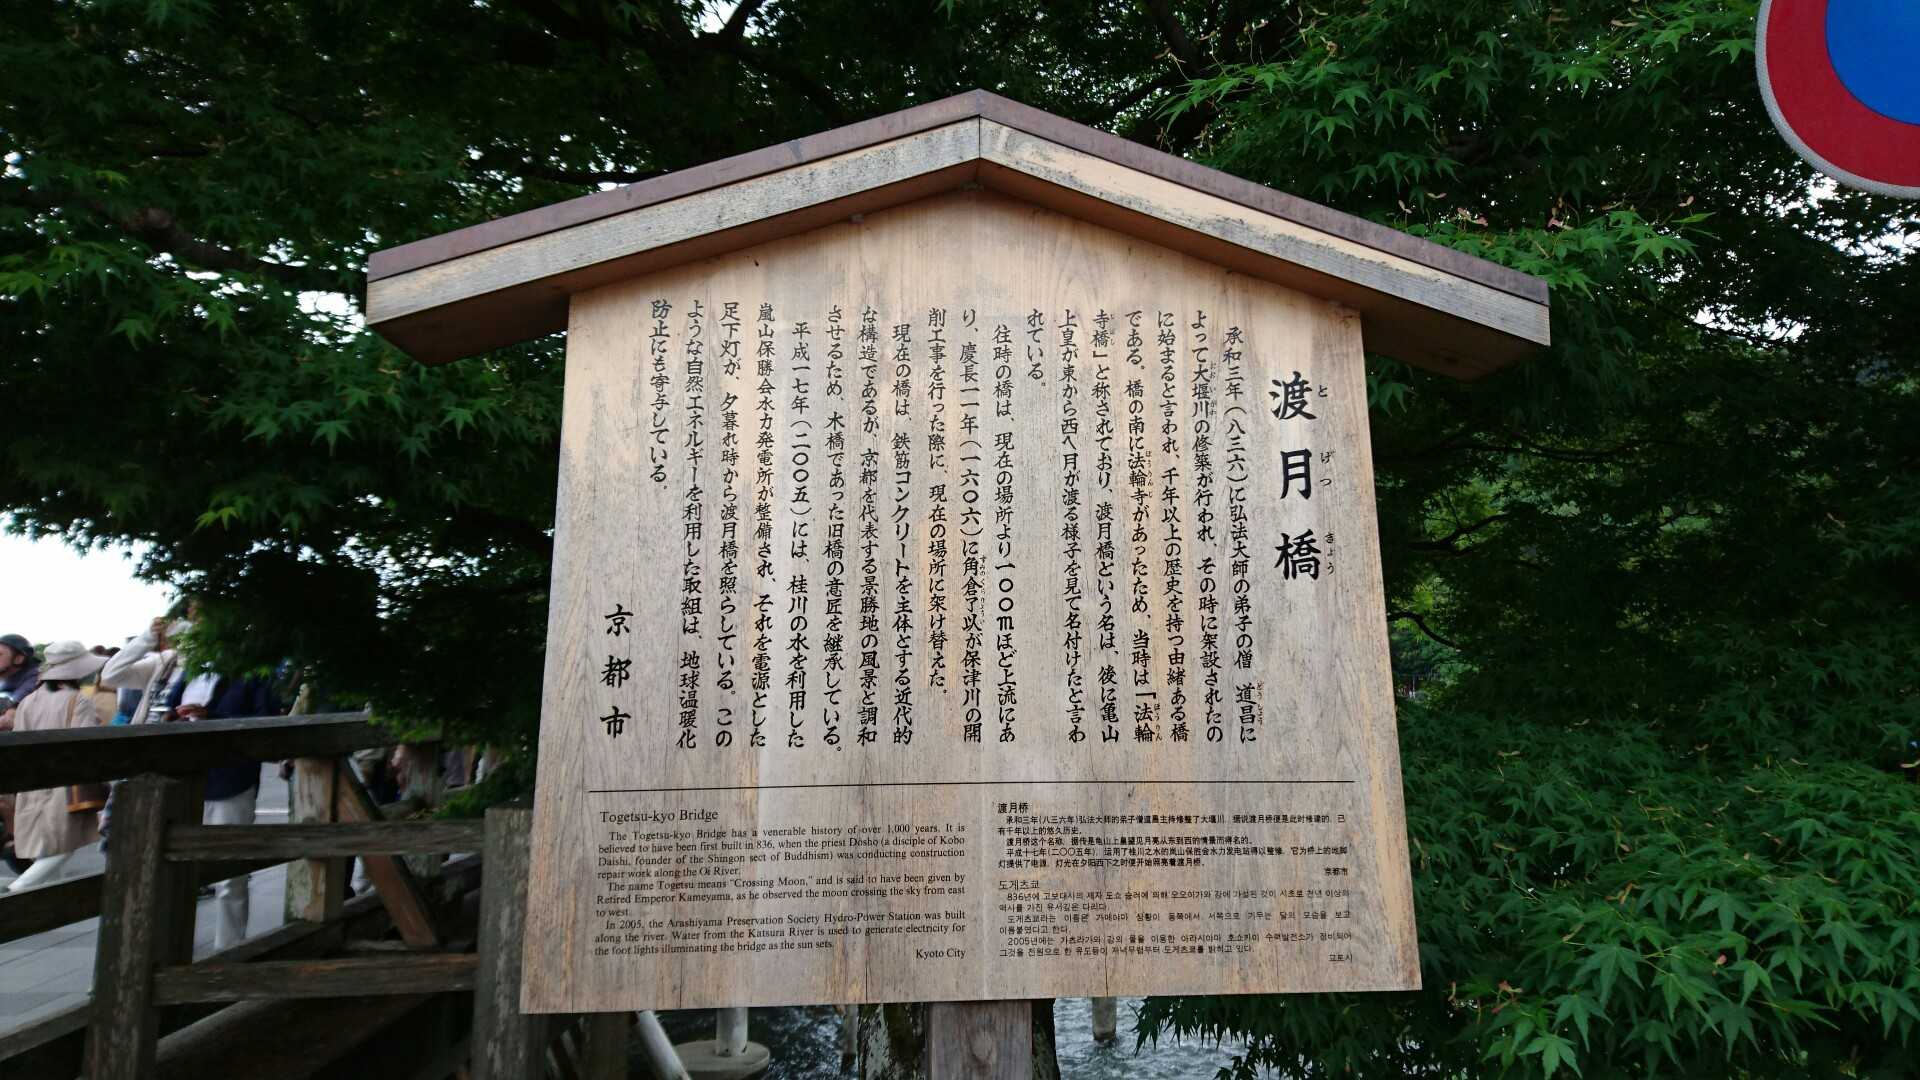 渡月橋
とげつきょう
承和三年(八三六)に弘法大師の弟子の僧 道昌に
よって大堰川の修築が行われ、その時に架設されたの
に始まると言われ、千年以上の歴史を持つ由緒ある橋
である。橋の南に法輪寺があったため、当時は「法輪
寺橋」と称されており、渡月橋という名は、後に亀山
上皇が東から西へ月が渡る様子を見て名付けたと言わ
れている。
往時の橋は、現在の場所より一〇〇mほど上流にあ
り、慶長一一年(一六〇六)に角倉了以が保津川の開
削工事を行った際に、現在の場所に架け替えた。
現在の橋は、鉄筋コンクリートを主体とする近代的
な構造であるが、京都を代表する景勝地の風景と調和
させるため、木橋であった旧橋の意匠を継承している。
平成一七年(二〇〇五)には、桂川の水を利用した
嵐山保勝会水力発電所が整備され、それを電源とした
足下灯が、夕暮れ時から渡月橋を照らしている。この
ような自然エネルギーを利用した取組は、地球温暖化
防止にも寄与している。
京都市
Togetsu-kyo Bridge
The Togetsu-kyo Bridge has a venerable history of over 1,000 years. It is
believed to have been first built in 836, when the priest Dōsho (a disciple of Kobo
Daishi, founder of the Shingon sect of Buddhism) was conducting construction
repair work along the Oi River.
The name Togetsu means "Crossing Moon," and is said to have been given by
Retired Emperor Kameyama, as he observed the moon crossing the sky from east
to west.
In 2005, the Arashiyama Preservation Society Hydro-Power Station was built
along the river. Water from the Katsura River is used to generate electricity for
the foot lights illuminating the bridge as the sun sets.
Kyoto City
渡月桥
承和三年(八三六年)弘法大师的弟子僧道昌主持修整了大堰川，据说渡月桥便是此时修建的，已
有千年以上的悠久历史。
渡月桥这个名称，据传是龟山上皇望见月亮从东到西的情景而得名的。
平成十七年(二〇〇五年)，运用了桂川之水的岚山保胜会水力发电站得以整修，它为桥上的地脚
灯提供了电源，灯光在夕阳西下之时便开始照亮着渡月桥。
京都市
도게츠쿄
836년에 고보대사의 제자 도쇼 승려에 의해 오오이가와 강에 가설된 것이 시초로 천년 이상의
역사를 가진 유서깊은 다리다.
도게츠쿄라는 이름은 가메야마 상황이 동쪽에서 서쪽으로 기우는 달의 모습을 보고
이름붙였다고 한다.
2005년에는 가츠라가와 강의 물을 이용한 아라시야마 호쇼카이 수력발전소가 정비되어
그것을 전원으로 한 유도등이 저녁무렵부터 도게츠쿄를 밝히고 있다.
교토시